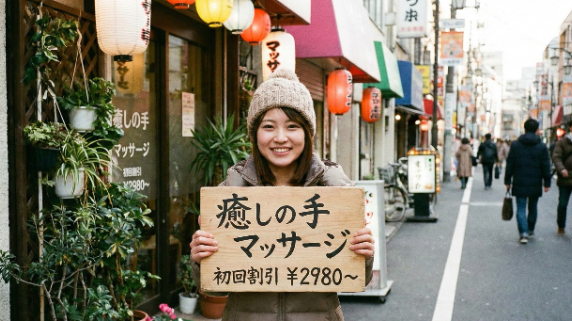 癒しの手
マッサージ
初回割引 ¥2980〜
癒しの手
マッサージ
¥2980〜
マッサ